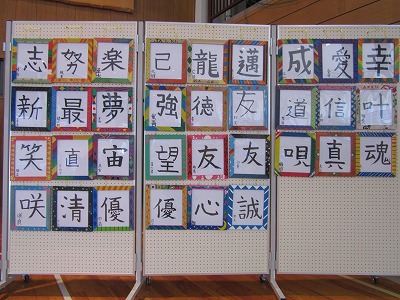 志 努 楽 己 龍 邁 成 愛 幸
新 最 夢 強 徳 友 道 信 叶
笑 直 宙 望 友 友 唄 真 魂
咲 清 優 優 心 誠